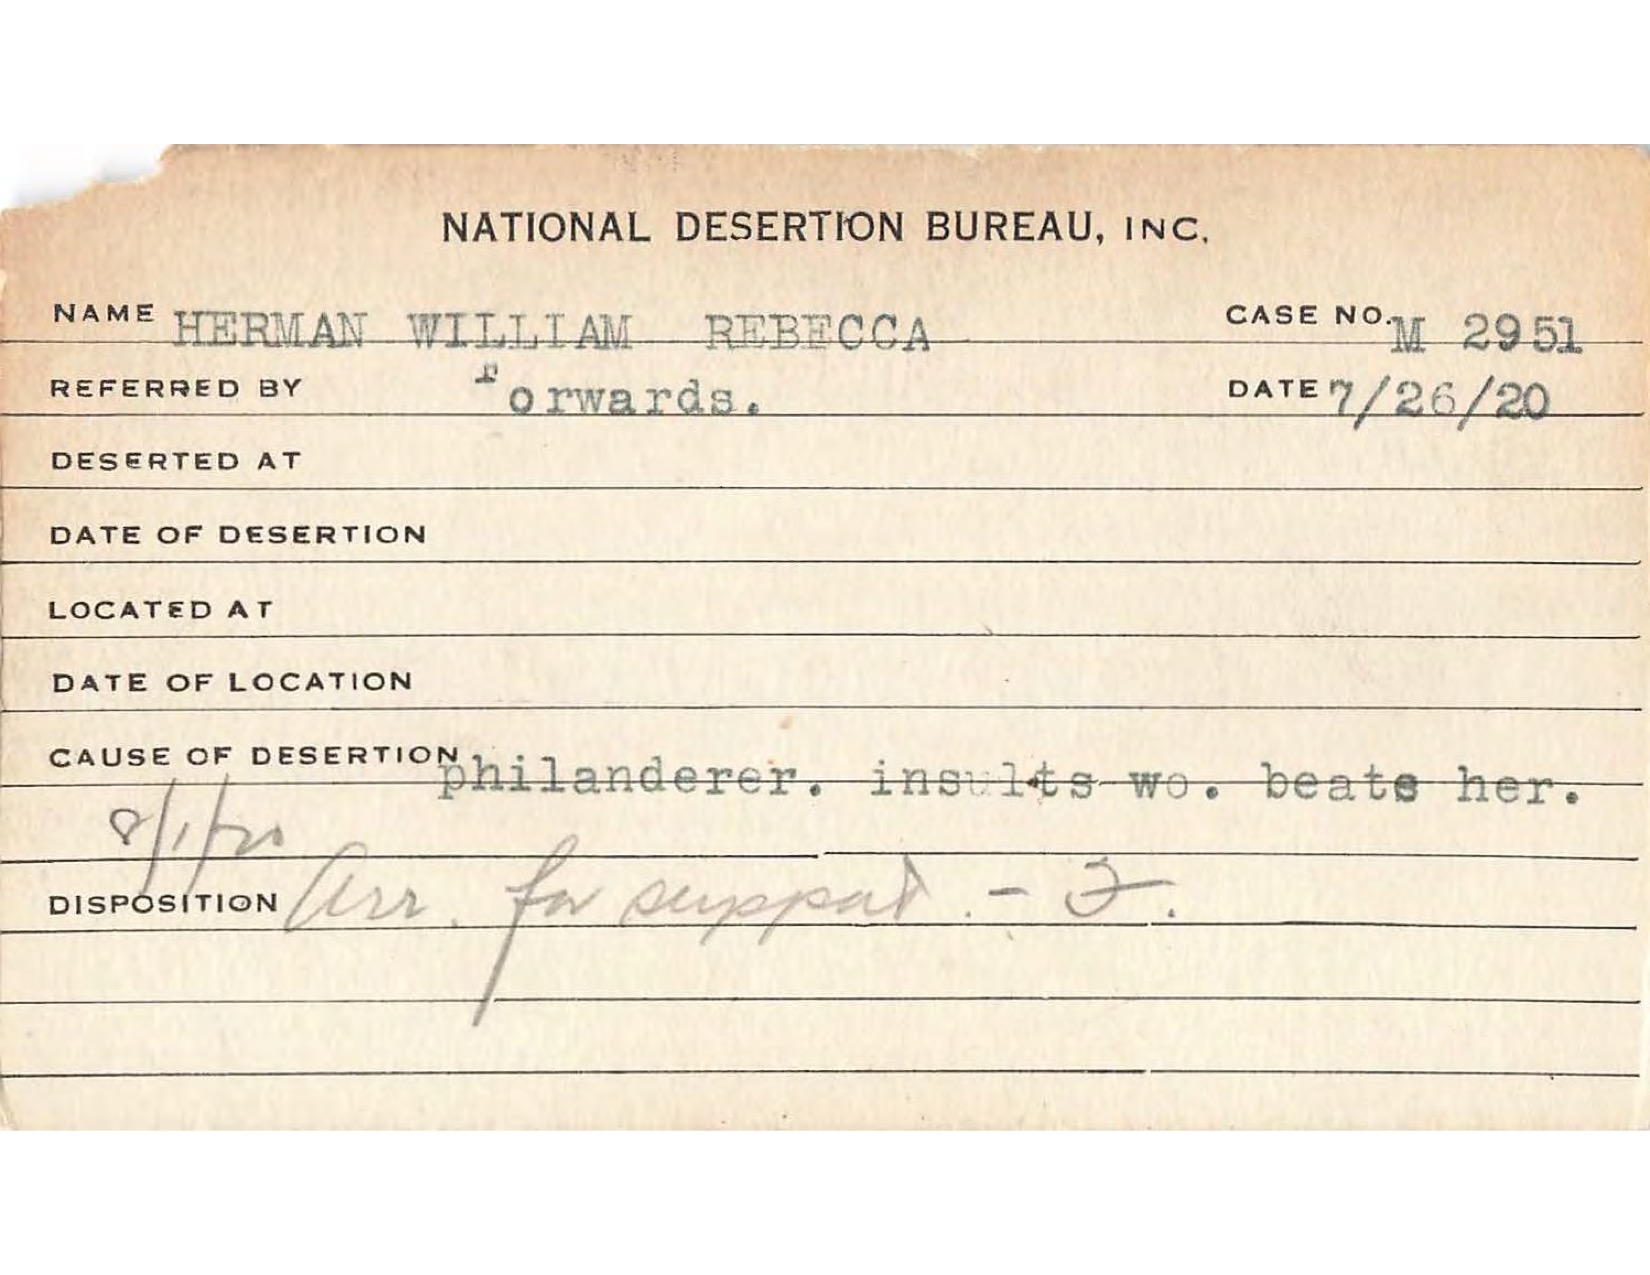 NATIONAL DESERTION BUREAU, INC.
NAME HERMAN WILLIAM REBECCA CASE NO. M 2951
REFERRED BY Forwards. DATE 7/26/20
DESERTED AT
DATE OF DESERTION
LOCATED AT
DATE OF LOCATION
CAUSE OF DESERTION philanderer. insults wo. beats her.
8/1/20
DISPOSITION Arr. for support. -